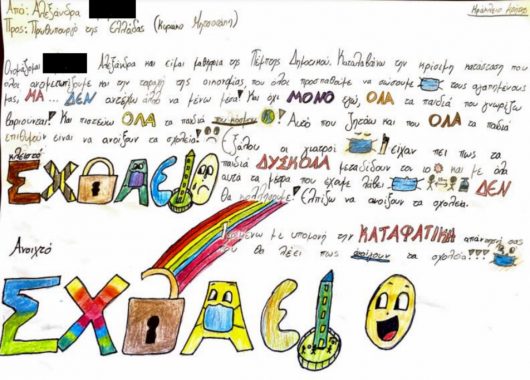 Από: Αλεξάνδρα
Προς: Πρωθυπουργό της Ελλάδας (Κυριάκο Μητσοτάκη)
Ηράκλειο Κρήτης
Ονομάζομαι Αλεξάνδρα και είμαι μαθήτρια της Πέμπτης Δημοτικού. Καταλαβαίνω την κρίσιμη κατάσταση που
όλοι αντιμετωπίζουμε και την της οικονομίας που όλοι προσπαθούμε να σώσουμε τους αγαπημένους
μας, ΜΑ ... ΔΕΝ αντέχω άλλο να μένω μέσα! Και όχι ΜΟΝΟ εγώ, ΟΛΑ τα παιδιά που γνωρίζω
βαριούνται! Και πιστεύω ΟΛΑ τα παιδιά του κόσμου! Αυτό που ζητάω και που ΟΛΑ τα παιδιά
επιθυμούν είναι να ανοίξουν τα σχολεία! (Εξάλλου οι γιατροί είχαν πει πως τα
παιδιά ΔΥΣΚΟΛΑ μεταδίδουν τον ιό και με όλα
αυτά τα μέτρα που έχουμε λάβει ΔΕΝ
θα κολλήσουμε! Ελπίζω να ανοίξουν τα σχολεία.
Κλειστό
ΣΧΟΛΕΙΟ
Περιμένω με υπομονή την ΚΑΤΑΦΑΤΙΚΑ απάντησή σας
που θα λέει πως ανοίγουν τα σχολεία!!!
Ανοιχτό
ΣΧΟΛΕΙΟ